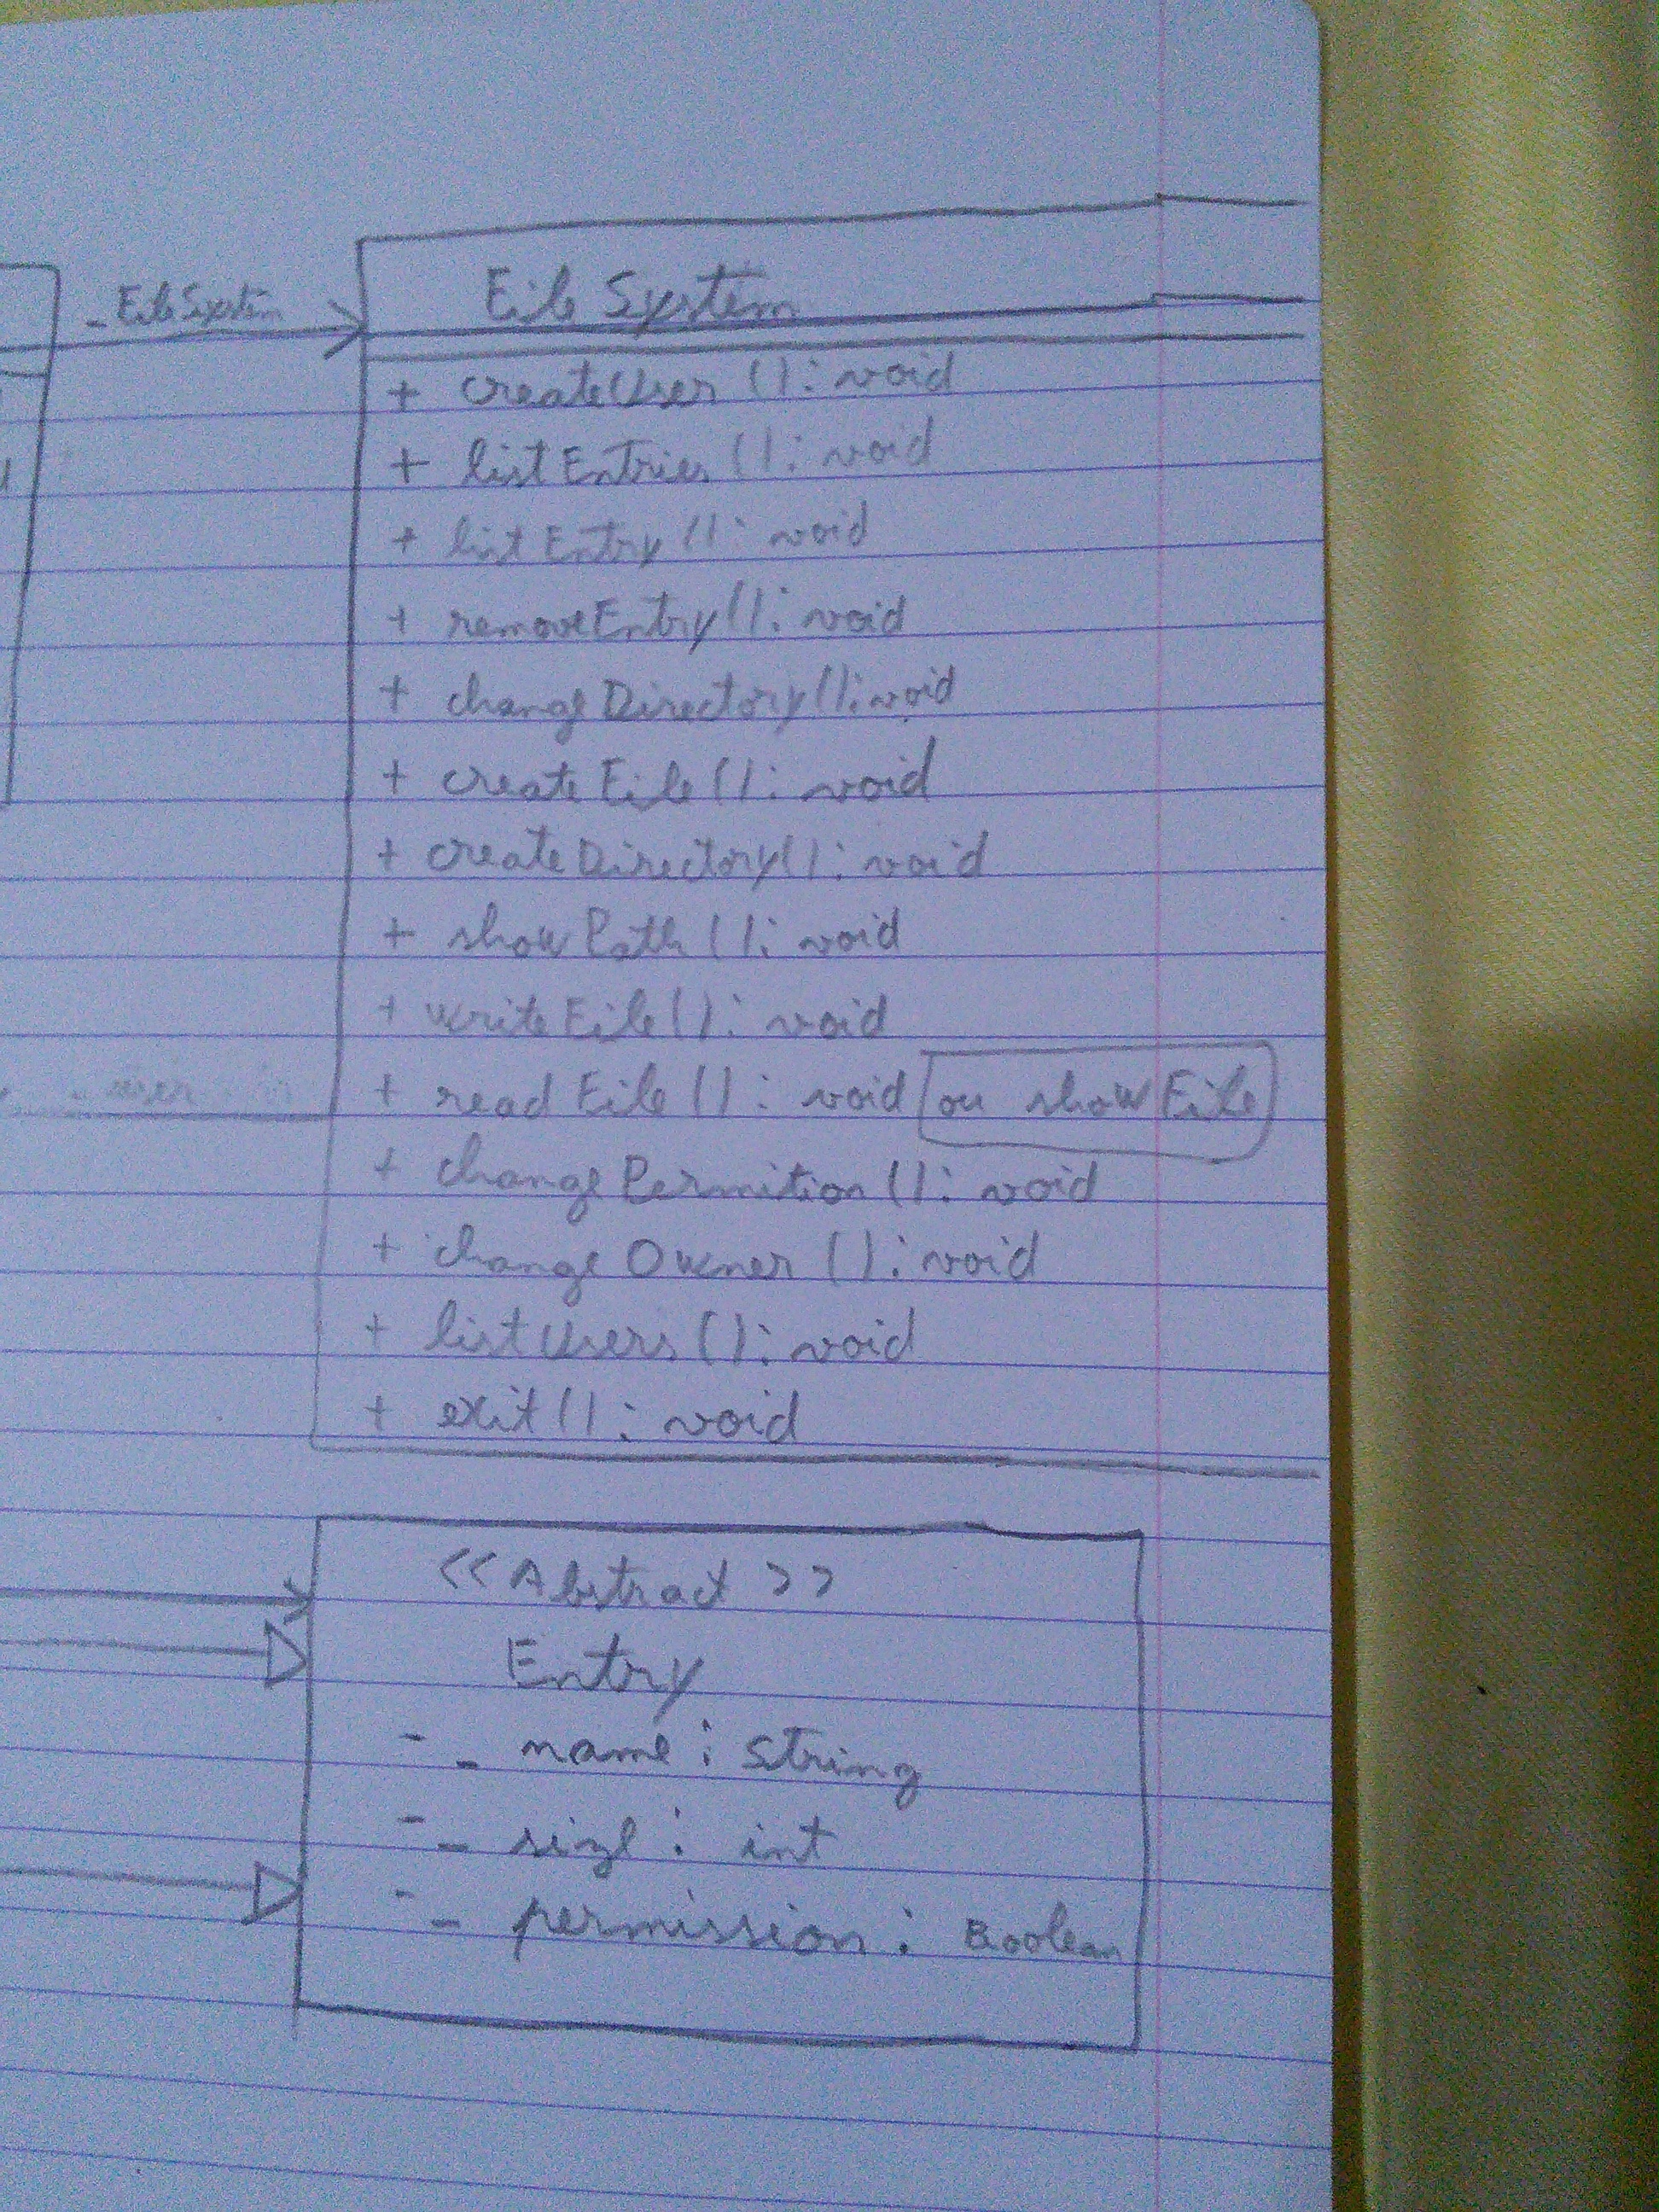 - FileSystem
File System
+ createUser (): void
+ listEntries (): void
+ listEntry (): void
+ removeEntry(): void
+ changeDirectory(): void
+ createFile(): void
+ createDirectory(): void
+ showPath(): void
+ writeFile(): void
+ readFile(): void ou showFile
+ changePermition(): void
+ changeOwner(): void
+ listUsers(): void
+ exit(): void
<<Abstract>>
Entry
- _ name: string
- _ size: int
- _ permission: Boolean